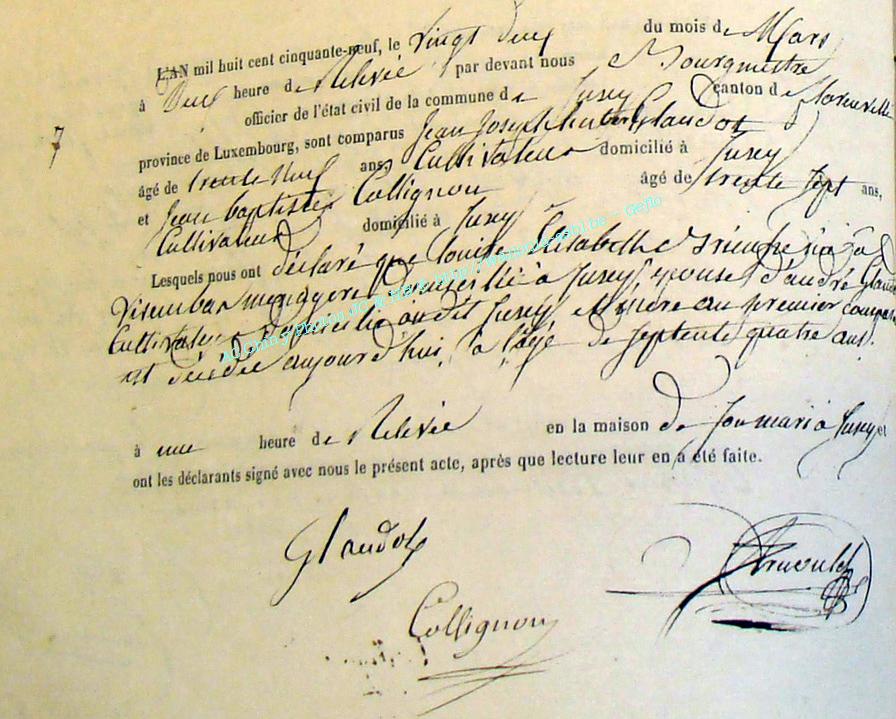 7
L'AN mil huit cent cinquante-neuf, le vingt deux du mois de Mars
à Deux heure de Relevée par devant nous Bourgmestre
officier de l'état civil de la commune de Juzey canton de Florenville
province de Luxembourg, sont comparus Jean Joseph Glaudot
âgé de trente neuf ans Cultivateur domicilié à Juzey
et Jean baptiste Collignon âgé de trente sept ans,
Cultivateur domicilié à Juzey
Lesquels nous ont déclaré que louise Elisabeth née à
menagere Domicilié à Juzey, epouse d'andré Glaudot
Cultivateur Domicilié audit Juzey et mère au premier comparant
est décédée aujourd'hui, à l'age de septente quatre ans.
à une heure de Relevée en la maison de son mari à Juzey et
ont les déclarants signé avec nous le présent acte, après que lecture leur en a été faite.
Glaudot
Collignon